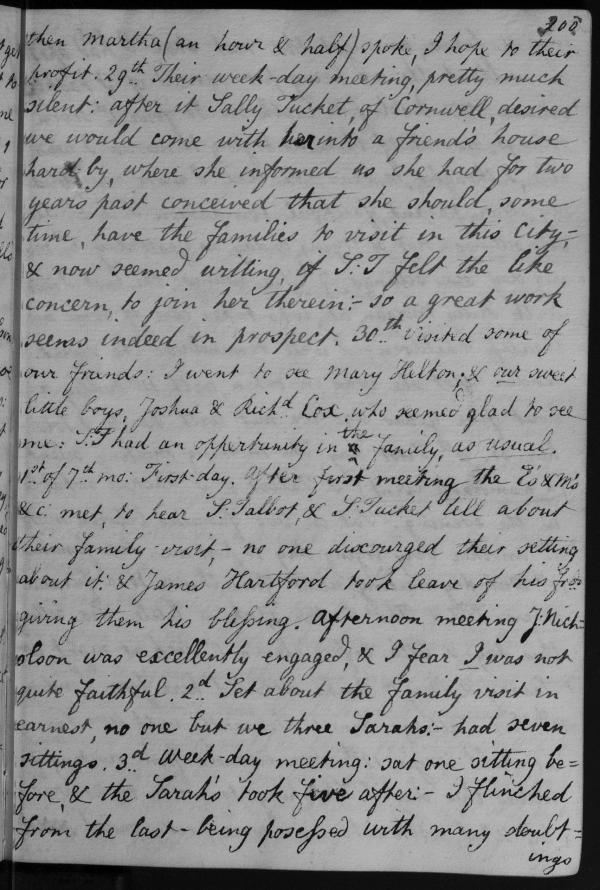 200
then Martha (an hour & half) spoke, I hope to their
profit. 29th. Their week-day meeting, pretty much
silent: after it Sally Tucket, of Cornwell, desired
we would come with her into a friend's house
hard by, where she informed us she had for two
years past conceived that she should, some
time, have the families to visit in this City;
& now seemed willing, if S:T felt the like
concern, to join her therein:- so a great work
seems indeed in prospect. 30th. visited some of
our friends: I went to see Mary Hilton; & our sweet
little boys, Joshua & Richd. Cox, who seemed glad to see
me: S:T had an oppertunity in the family, as usual.
1st of 7th mo: First-day. After first meeting the E's & M's
&c: met, to hear S: Talbot, & S: Tucket tell about
their family-visit,- no one discourged their setting
about it: & James Hartford took leave of his frds
giving them his blessing. Afternoon meeting J: Nich=
olson was excellently engaged, & I fear I was not
quite faithful. 2d. Set about the family visit in
earnest, no one but we three Sarahs:- had seven
sittings. 3d. Week-day meeting: sat one sitting be=
fore, & the Sarah's took five after:- I flinched
from the last- being posessed with many doubt=
ings